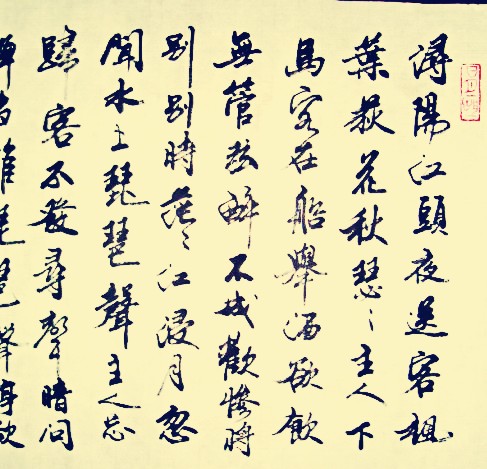 潯陽江頭夜送客楓
葉荻花秋瑟〻主人下
馬客在船舉酒欲飲
無管弦醉不成歡慘將
別別時茫〻江浸月忽
聞水上琵琶聲主人忘
歸客不發尋聲暗問
彈者誰琵琶聲停欲